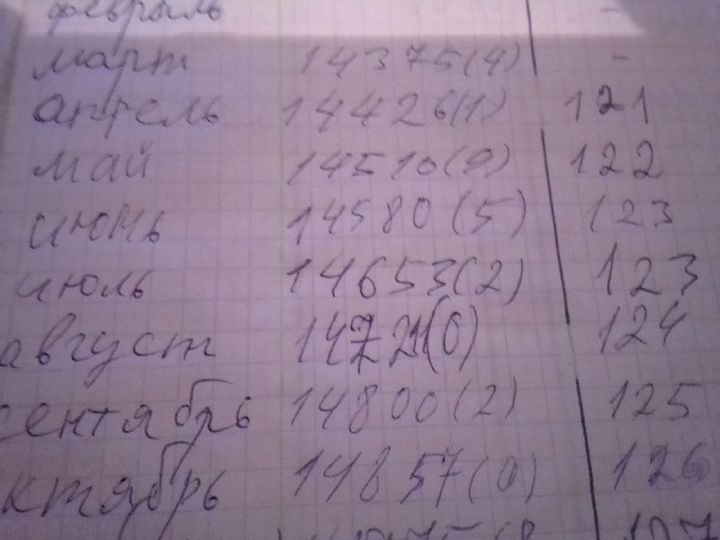 февраль -
март 14375(4) -
апрель 14426(1) 121
май 14510(9) 122
июнь 14580(5) 123
июль 14653(2) 123
август (0) 124
сентябрь 14800(2) 125
октябрь 14857(0) 126
127